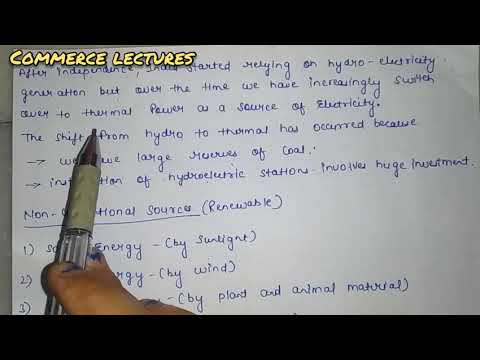 COMMERCE LECTURES
After independence, India started relying on hydro-eletricity
generation but over the time we have increasingly switch
over to thermal Power as a source of Eletricity.
The shift from hydro to thermal has occurred because
→ we have large reserves of Coal.
→ of hydroeletric stations involves huge investment.
Non- Sources (Renewable)
1) Energy - (by Sunlight)
2) - (by wind)
3) - (by plant and animal material)